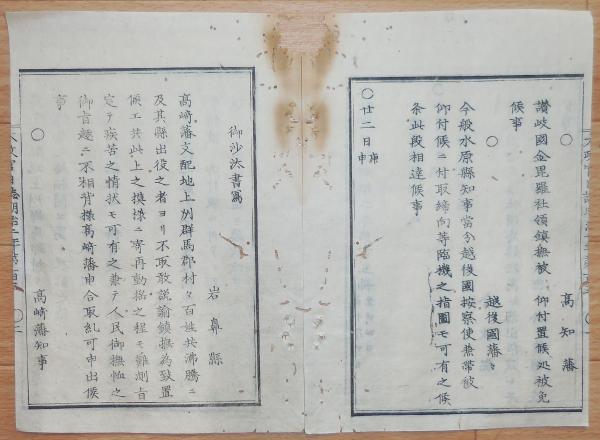 ○
高知藩
讃岐國金毘羅社領鎮撫被 仰付置候処被免
候事
越後國藩々
今般水原縣知事當分越後國按察使兼帯被
仰付候ニ付取締向等臨機之指圖モ可有之候
条此段相達候事
○廿二日庚申
御沙汰書寫
岩鼻縣
高崎藩支配地上州群馬郡村々百姓共沸騰ニ
及其縣出役之者ヨリ不取敢説諭鎮撫為致置
候エ共此上之模様ニ寄再動揺之程モ難測旨
定テ疾苦之情状モ可有之兼テ人民御撫恤之
御旨趣ニ不相背様高崎藩申合取糺可申出候
事
○
高崎藩知事